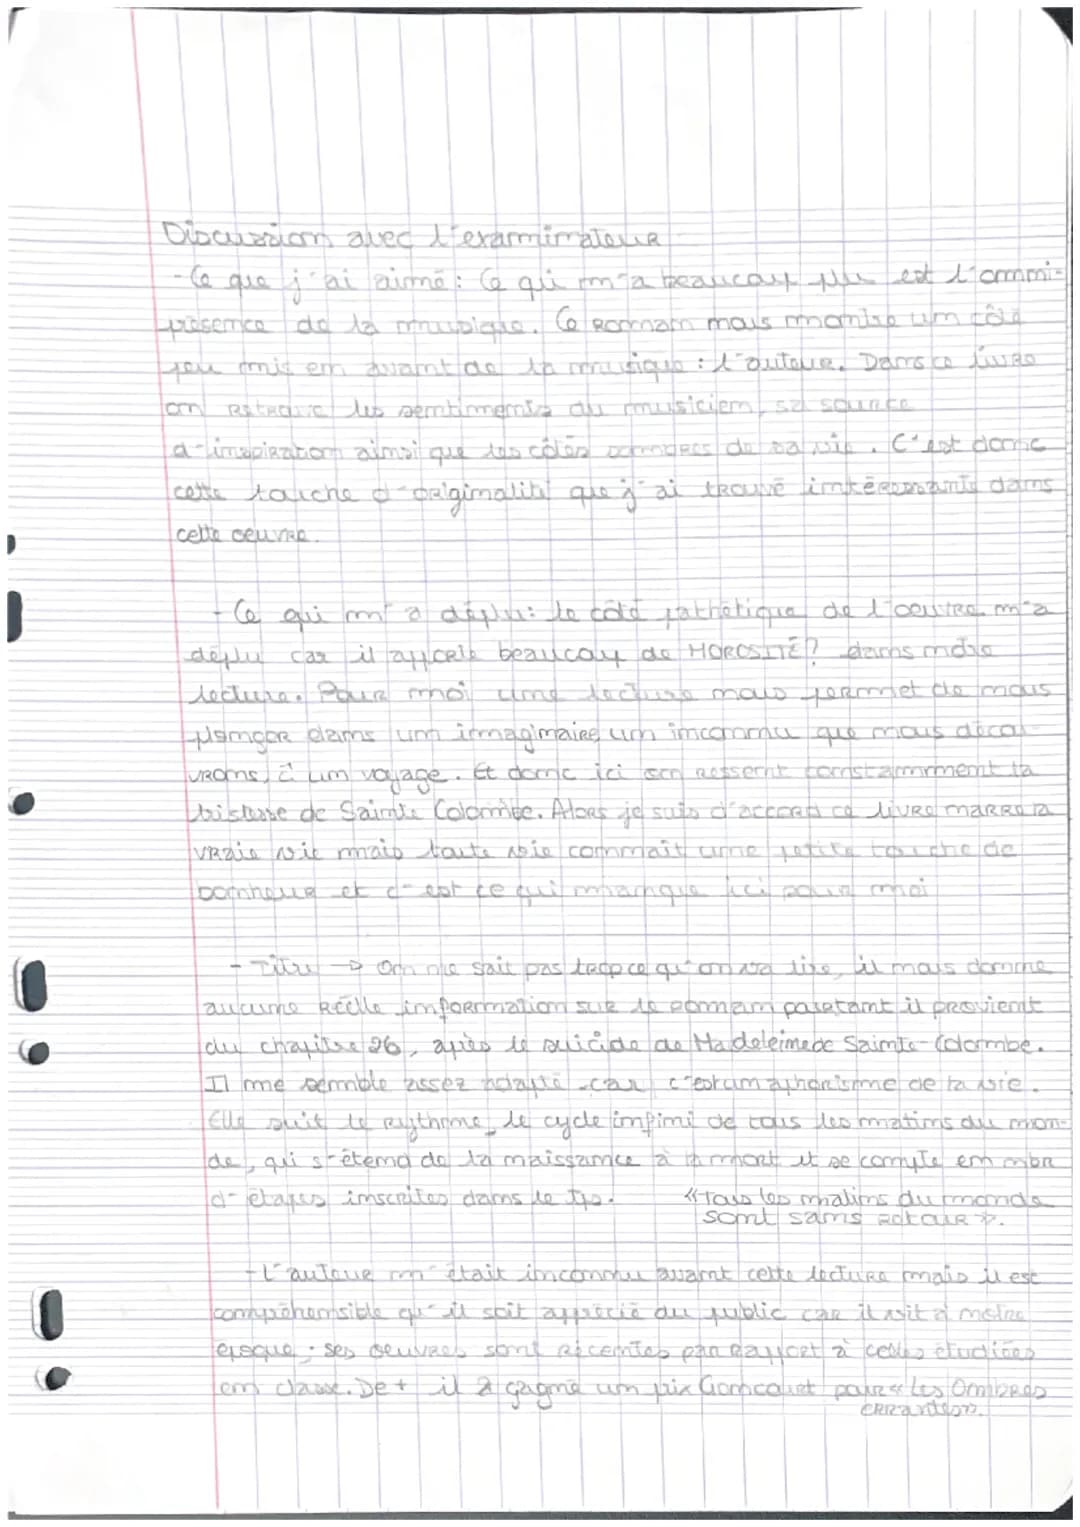 Discussion avec l'examinateur
- Ce que j'ai aimé : Ce qui m'a beaucoup plu est l'omni-
présence de la musique. Ce roman nous montre un côté
peu mis en avant de la musique : l'auteur. Dans ce livre
on retrouve les sentiments du musicien, sa source
d'inspiration ainsi que les côtés sombres de sa vie. C'est donc
cette touche d'originalité que j'ai trouvé intéressante dans
cette oeuvre.
- Ce qui m'a déplu : le côté pathétique de l'oeuvre m'a
déplu car il apporte beaucoup de MOROSITÉ? dans notre
lecture. Pour moi une lecture nous permet de nous
plonger dans un imaginaire, un inconnu que nous décou-
vrons, à un voyage. Et donc ici on ressent constamment la
tristesse de Sainte Colombe. Alors je suis d'accord ce livre narre la
vraie vie mais toute vie connaît une petite touche de
bonheur et c'est ce qui manque ici pour moi
- Titre → On ne sait pas trop ce qu'on va lire, il nous donne
aucune réelle information sur le roman pourtant il provient
du chapitre 26, après le suicide de Madeleine de Sainte-Colombe.
Il me semble assez adapté car c'est un aphorisme de la vie.
Elle suit le rythme, le cycle infini de tous les matins du mon-
de, qui s'étend de la naissance à la mort et se compte en nbr
d'étapes inscrites dans le tps. «Tous les matins du monde
sont sans retour».
- L'auteur m'était inconnu avant cette lecture mais il est
compréhensible qu'il soit apprécié du public car il vit à notre
époque ; ses oeuvres sont récentes par rapport à celles étudiées
en classe. De + il a gagné un prix Goncourt pour «Les Ombres
errantes».